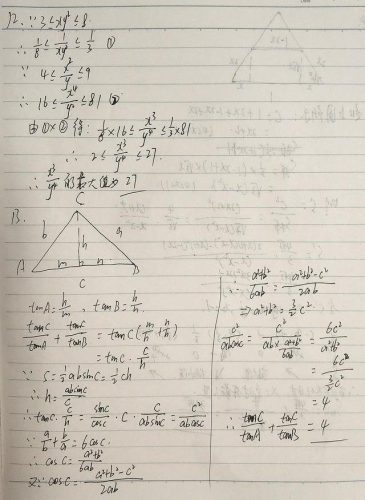 12. ∵ 3 ≤ xy² ≤ 8
∴ 1/8 ≤ 1/xy² ≤ 1/3 ①
∵ 4 ≤ x²/y ≤ 9
∴ 16 ≤ x⁴/y² ≤ 81 ②
由①×②得: 1/8×16 ≤ x³/y⁴ ≤ 1/3×81
∴ 2 ≤ x³/y⁴ ≤ 27
∴ x³/y⁴的最大值为27
C
13.
b a
h
A m n B
C
tanA = h/m , tanB = h/n
tanC/tanA + tanC/tanB = tanC(m/h + n/h)
= tanC · C/h
∵ S = 1/2 absinC = 1/2 ch
∴ h = absinC/c
∴ tanC · C/h = sinC/cosC · C · C/absinC = c²/abcosC
∵ a/b + b/a = 6cosC
∴ cosC = a²+b²/6ab
又∵ cosC = a²+b²-c²/2ab
∴ a²+b²/6ab = a²+b²-c²/2ab
⇒ a²+b² = 3/2 c²
c²/abcosC = c²/ab× a²+b²/6ab = 6c²/a²+b²
= 6c²/3/2 c²
= 4
∴ tanC/tanA + tanC/tanB = 4